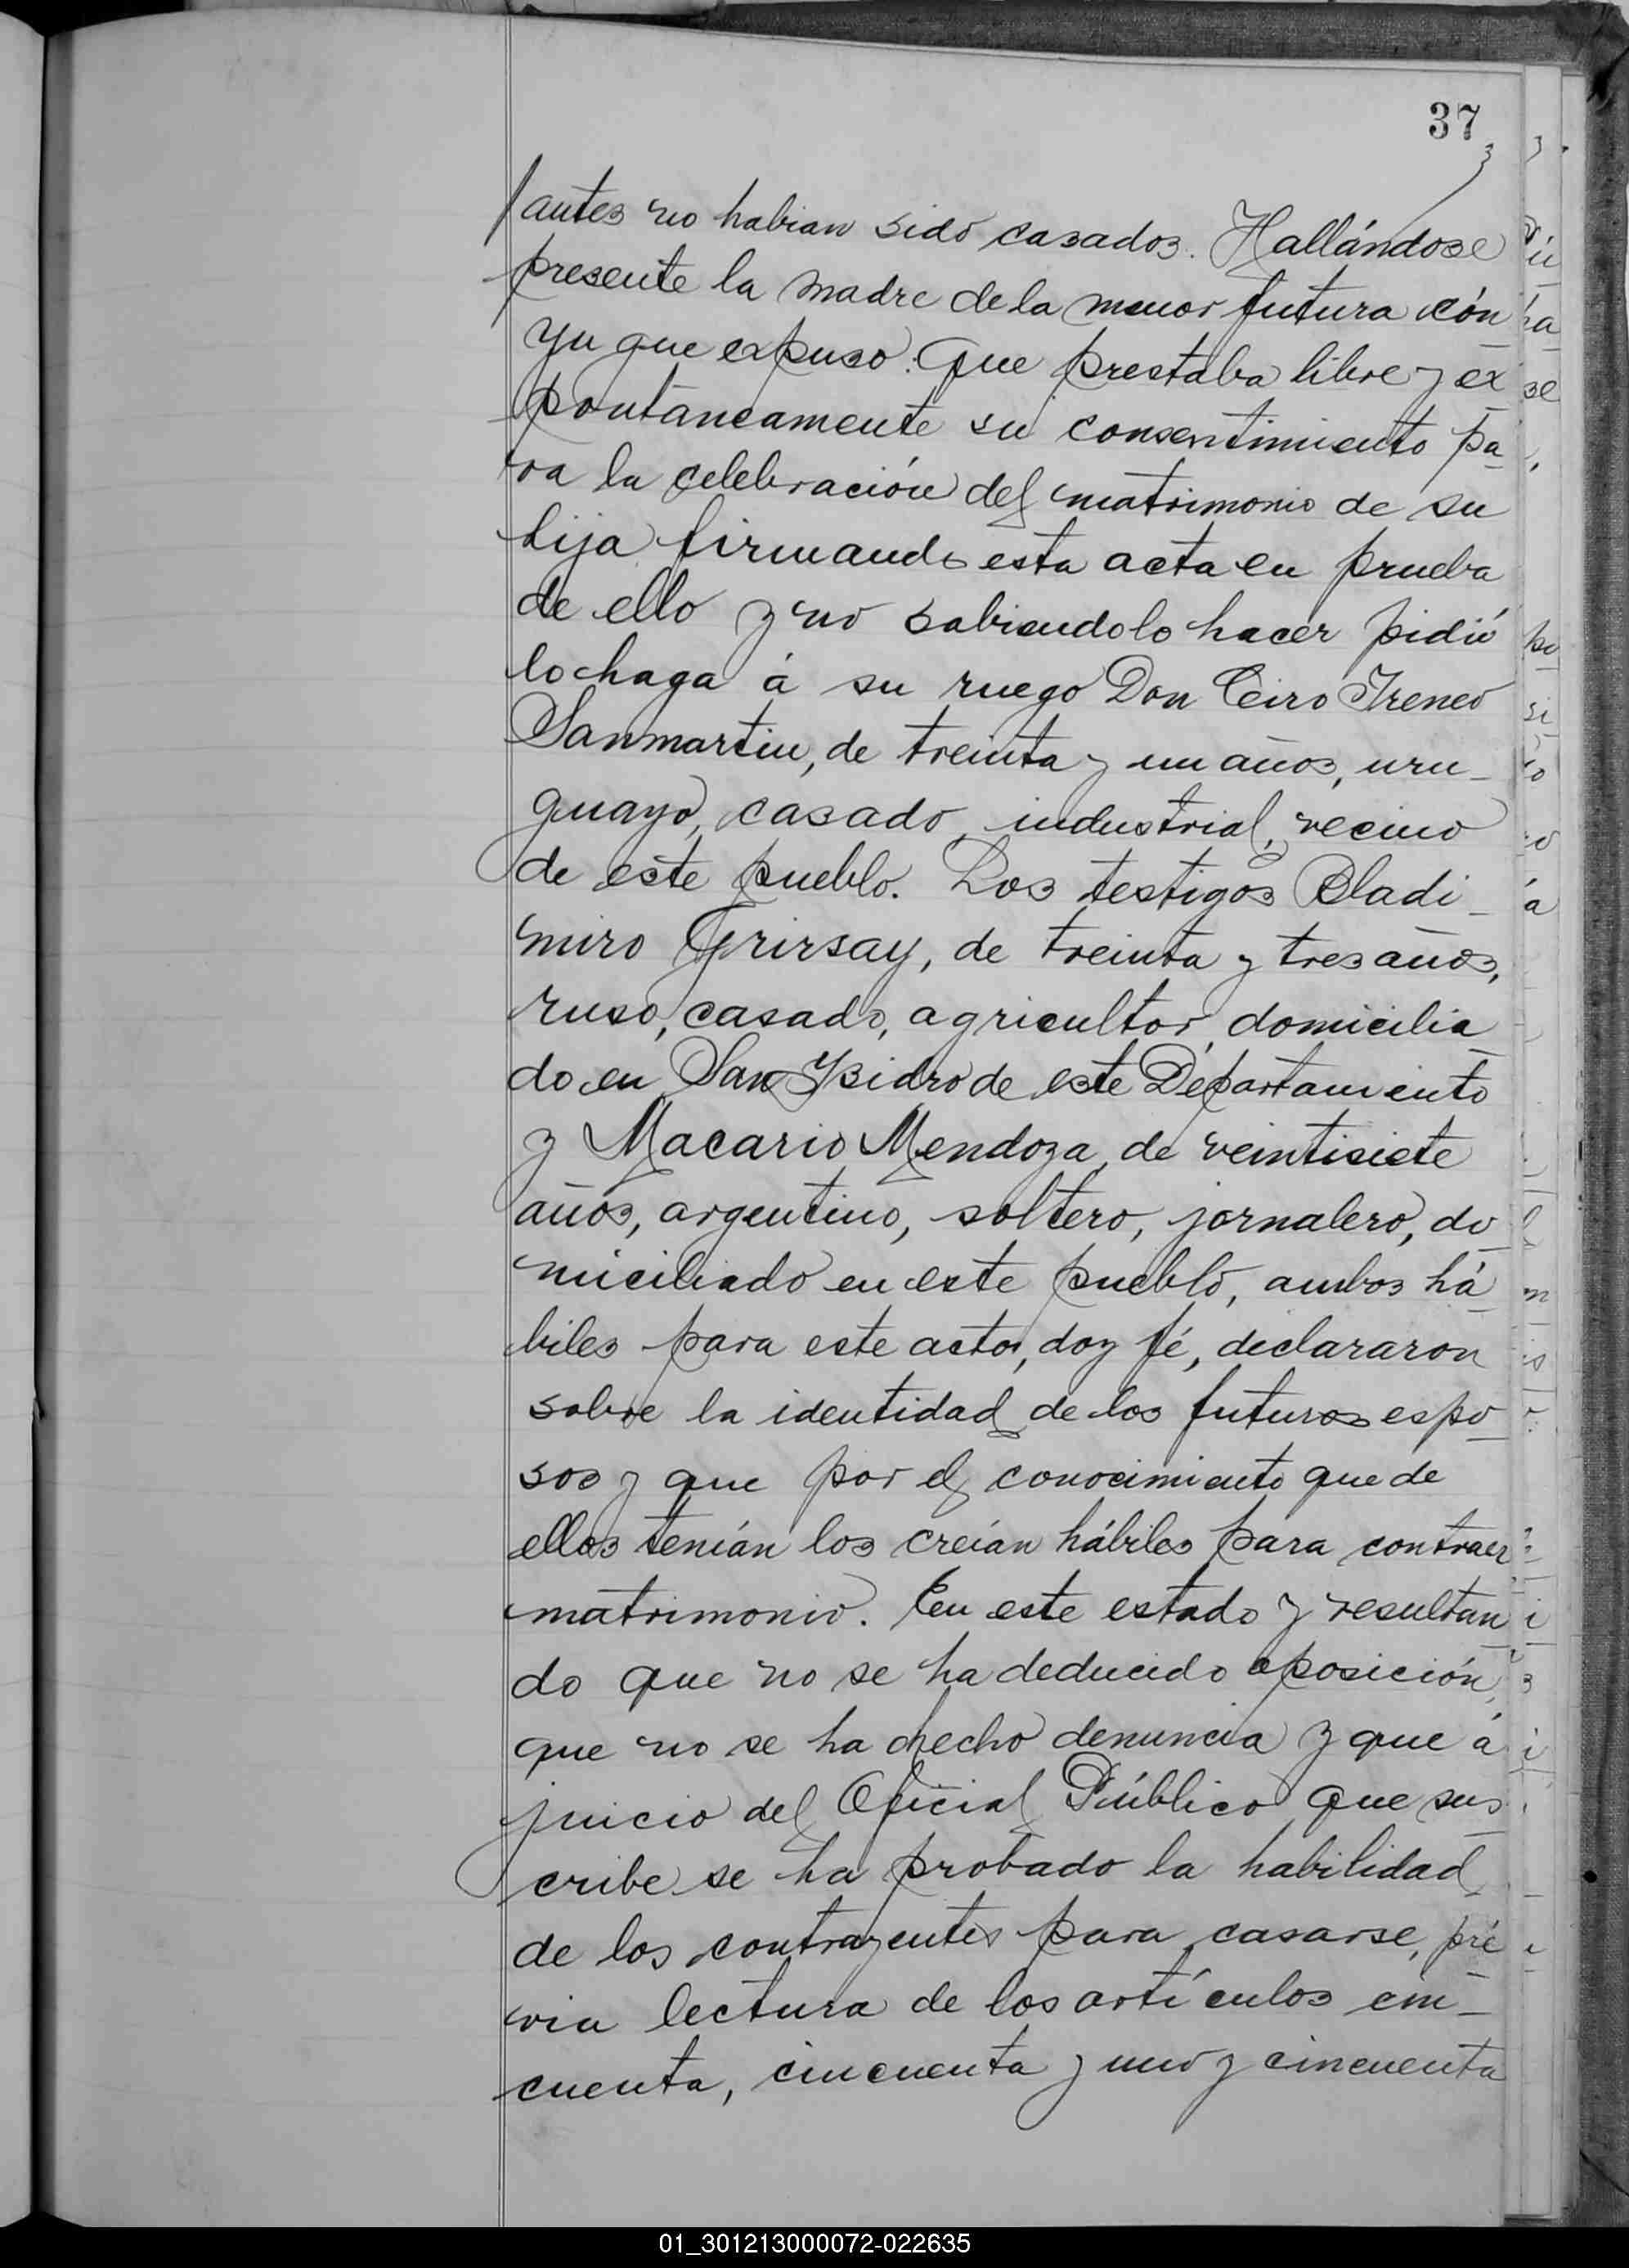 37
antes no habian sido casados. Hallándose
presente la madre de la menor futura cón
yuque expuso: Que prestaba libre y ex
pontáneamente su consentimiento pa
ra la celebración del matrimonio de su
hija firmando esta acta en prueba
de ello y no sabiendolo hacer pidió
lo haga á su ruego Don Ciro Ireneo
Sanmartin, de treinta y un años, uru-
guayo, casado, industrial, vecino
de este pueblo. Los testigos Bladi-
miro Grirsay, de treinta y tres años,
ruso, casado, agricultor, domicilia
do en San Ysidro de este Departamento
y Macario Mendoza, de veintisiete
años, argentino, soltero, jornalero, do
miciliado en este pueblo, ambos há
biles para este acto, doy fé, declararon
sobre la identidad de los futuros espo
sos y que por el conocimiento que de
ellos tenían los creían hábiles para contraer
matrimonio. En este estado y resultan
do que no se ha deducido oposición,
que no se ha hecho denuncia y que á
juicio del Oficial Público que sus
cribe se ha probado la habilidad
de los contrayentes para casarse, pré
via lectura de los artículos cin-
cuenta, cincuenta y uno y cincuenta
01_301213000072-022635